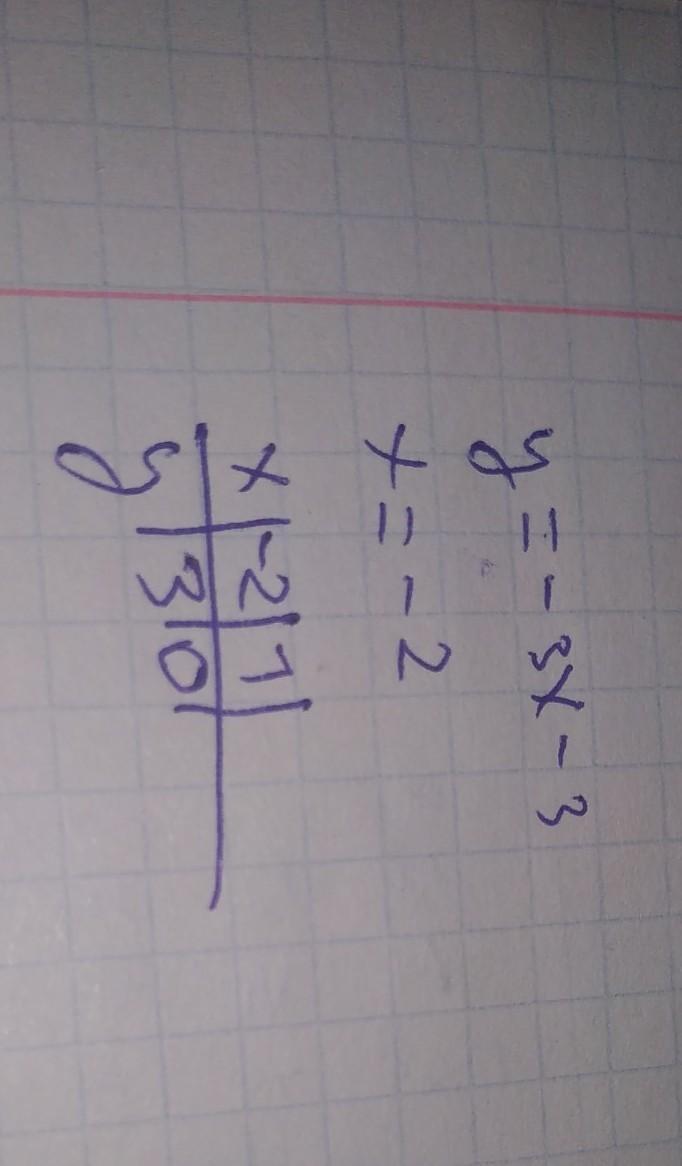 y = - 3x - 3
x = - 2
x | -2 | 1 |
y | 3 | 0 |